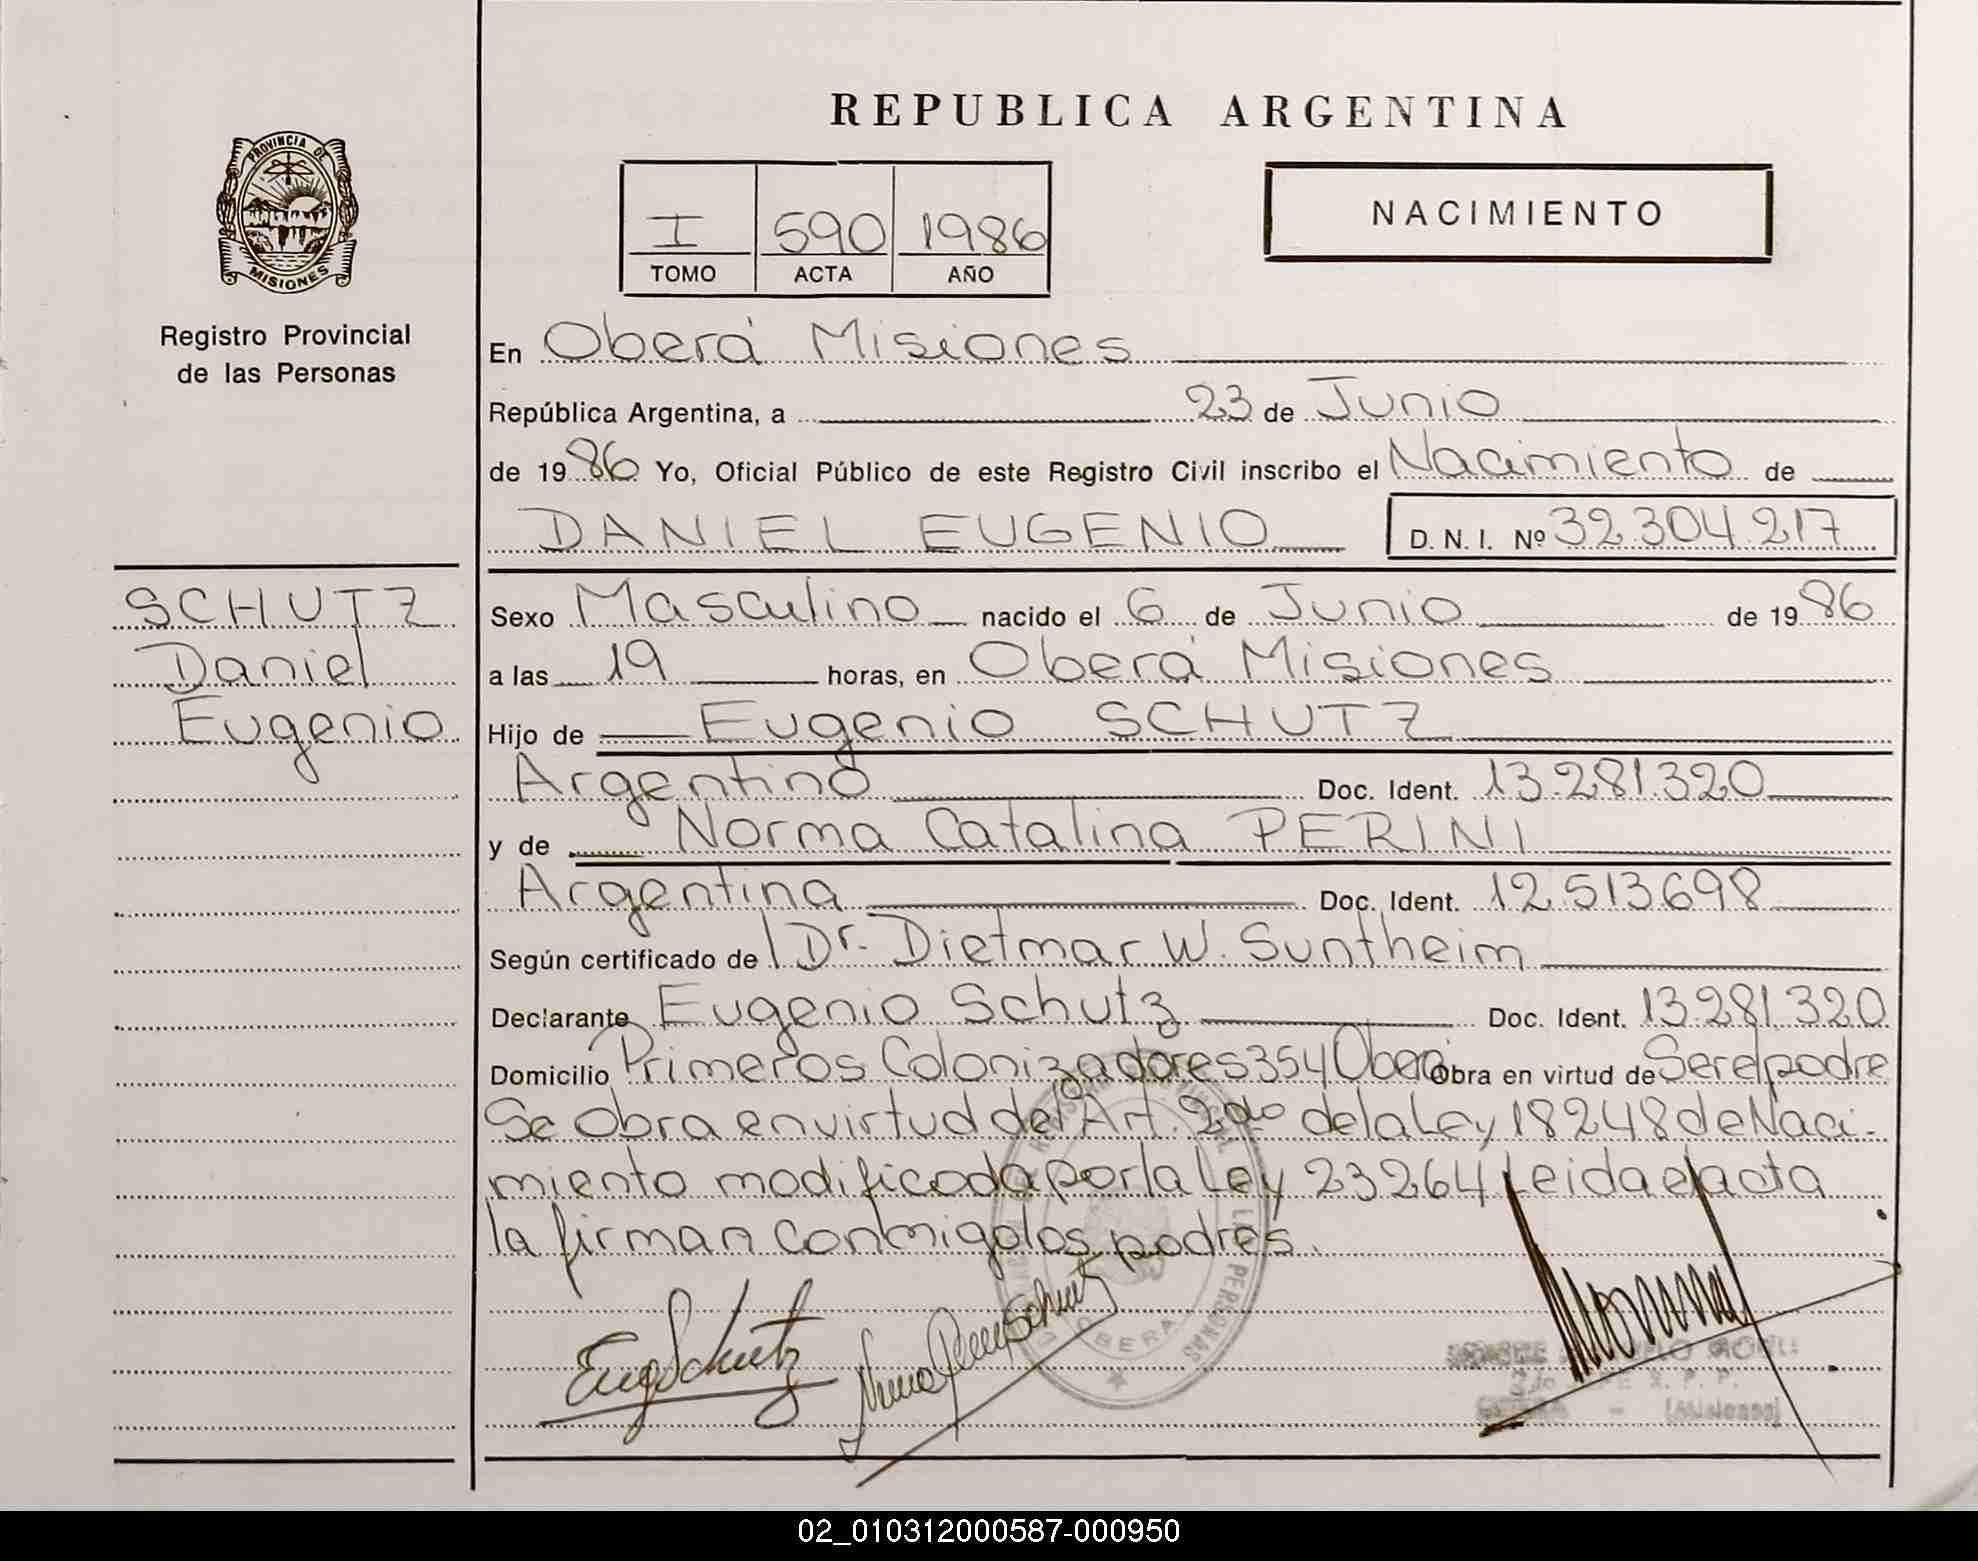 REPUBLICA ARGENTINA
PROVINCIA DE
MISIONES
Registro Provincial
de las Personas
I 590 1986
TOMO ACTA AÑO
NACIMIENTO
En Oberá Misiones
República Argentina, a 23 de Junio
de 1986 Yo, Oficial Público de este Registro Civil inscribo el Nacimiento de
DANIEL EUGENIO D.N.I. Nº 32.304.217
SCHUTZ
Daniel
Eugenio
Sexo Masculino nacido el 6 de Junio de 1986
a las 19 horas, en Oberá Misiones
Hijo de Eugenio SCHUTZ
Argentino Doc. Ident. 13.281.320
y de Norma Catalina PERINI
Argentina Doc. Ident. 12.513.698
Según certificado de Dr. Dietmar W. Suntheim
Declarante Eugenio Schutz Doc. Ident. 13.281.320
Domicilio Primeros Colonizadores 354 Oberá Obra en virtud de Ser el padre
Se Obra en virtud del Art. 2do de la Ley 18248 de Naci-
miento modificada por la Ley 23264 Leida el acta
la firman conmigo los padres.
Eug Schutz
OBERA
LAS PERSONAS
02_010312000587-000950